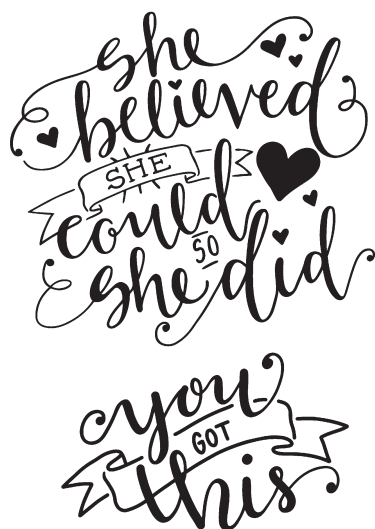 she
believed
SHE
could
so
she did
you
GOT
this